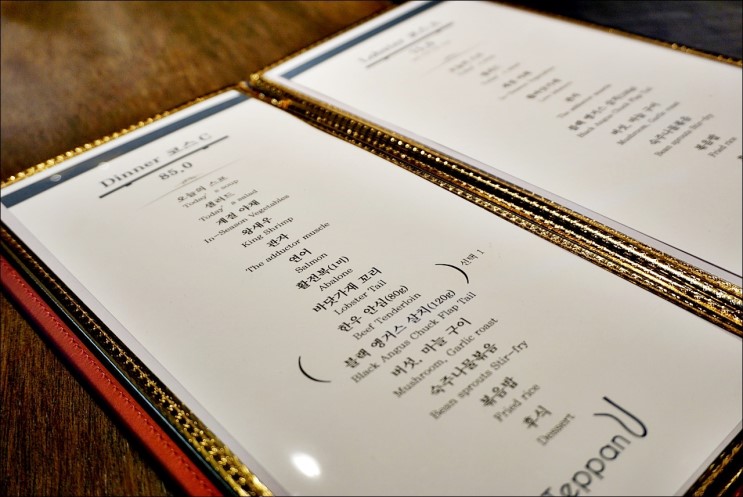 Dinner 코스 C
85.0
오늘의 스프
Today' s soup
샐러드
Today' s salad
계절 야채
In-Season Vegetables
왕새우
King Shrimp
관자
The adductor muscle
연어
Salmon
활전복(1미)
Abalone
바닷가재 꼬리
Lobster Tail
한우 안심(80g)
Beef Tenderloin
선택 1
블랙 앵거스 살치(120g)
Black Angus Chuck Flap Tail
버섯, 마늘 구이
Mushroom, Garlic roast
숙주나물볶음
Bean sprouts Stir-fry
볶음밥
Fried rice
후식
Dessert
Teppan
Lobster 코스
관자
The adductor muscle
블랙 앵거스 살치
Black Angus Chuck Flap Tail
버섯, 마늘 구이
Mushroom, Garlic roast
숙주나물볶음
Bean sprouts Stir-fry
볶음밥
Fried rice